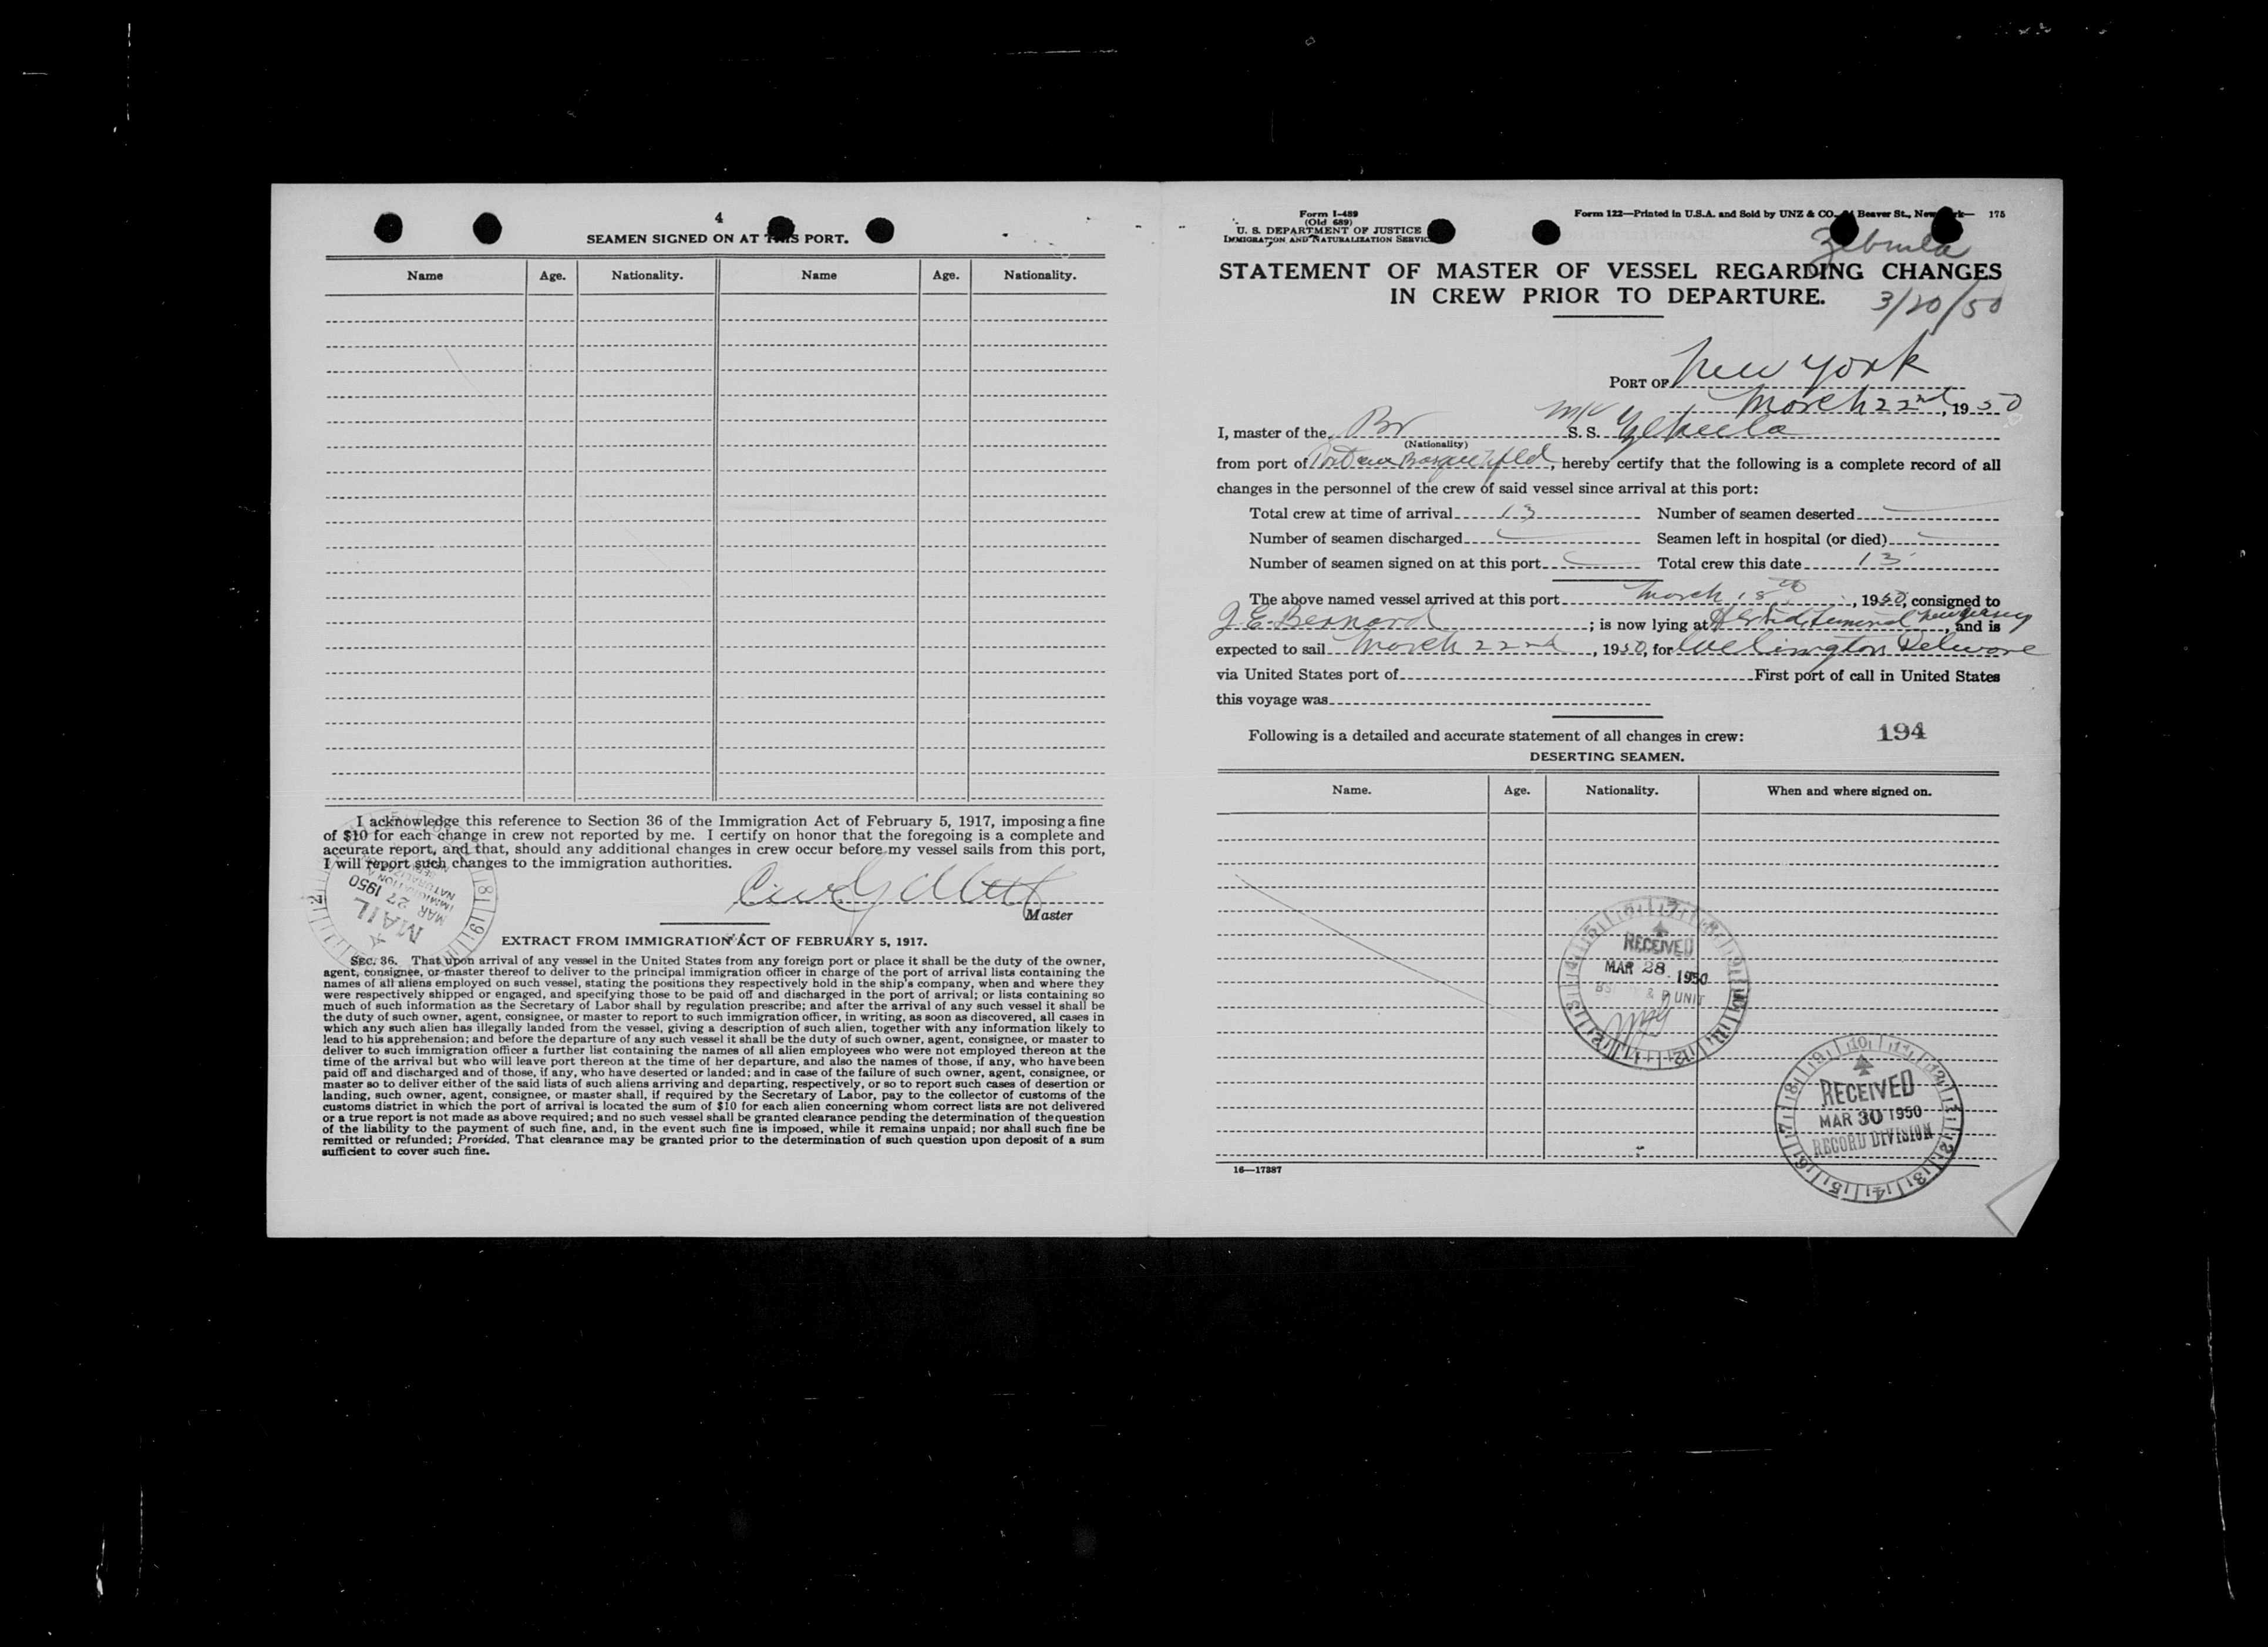 4
SEAMEN SIGNED ON AT THIS PORT.
Name Age. Nationality. Name Age. Nationality.
I acknowledge this reference to Section 36 of the Immigration Act of February 5, 1917, imposing a fine
of $10 for each change in crew not reported by me. I certify on honor that the foregoing is a complete and
accurate report, and that, should any additional changes in crew occur before my vessel sails from this port,
I will report such changes to the immigration authorities.
Master
MAIL
MAR 27 1950
IMMIGRATION &
EXTRACT FROM IMMIGRATION ACT OF FEBRUARY 5, 1917.
SEC. 36. That upon arrival of any vessel in the United States from any foreign port or place it shall be the duty of the owner,
agent, consignee, or master thereof to deliver to the principal immigration officer in charge of the port of arrival lists containing the
names of all aliens employed on such vessel, stating the positions they respectively hold in the ship's company, when and where they
were respectively shipped or engaged, and specifying those to be paid off and discharged in the port of arrival; or lists containing so
much of such information as the Secretary of Labor shall by regulation prescribe; and after the arrival of any such vessel it shall be
the duty of such owner, agent, consignee, or master to report to such immigration officer, in writing, as soon as discovered, all cases in
which any such alien has illegally landed from the vessel, giving a description of such alien, together with any information likely to
lead to his apprehension; and before the departure of any such vessel it shall be the duty of such owner, agent, consignee, or master to
deliver to such immigration officer a further list containing the names of all alien employees who were not employed thereon at the
time of the arrival but who will leave port thereon at the time of her departure, and also the names of those, if any, who have been
paid off and discharged and of those, if any, who have deserted or landed; and in case of the failure of such owner, agent, consignee, or
master so to deliver either of the said lists of such aliens arriving and departing, respectively, or so to report such cases of desertion or
landing, such owner, agent, consignee, or master shall, if required by the Secretary of Labor, pay to the collector of customs of the
customs district in which the port of arrival is located the sum of $10 for each alien concerning whom correct lists are not delivered
or a true report is not made as above required; and no such vessel shall be granted clearance pending the determination of the question
of the liability to the payment of such fine, and, in the event such fine is imposed, while it remains unpaid; nor shall such fine be
remitted or refunded; Provided, That clearance may be granted prior to the determination of such question upon deposit of a sum
sufficient to cover such fine.
Form I-489
(Old 689)
U. S. DEPARTMENT OF JUSTICE
IMMIGRATION AND NATURALIZATION SERVICE
Form 122—Printed in U.S.A. and Sold by UNZ & CO. Beaver St., New York— 175
Zebrula
STATEMENT OF MASTER OF VESSEL REGARDING CHANGES
IN CREW PRIOR TO DEPARTURE.
3/20/50
PORT OF New York
March 22nd, 1950
I, master of the Br S. S.
(Nationality)
from port of Port aux Basque Nfld, hereby certify that the following is a complete record of all
changes in the personnel of the crew of said vessel since arrival at this port:
Total crew at time of arrival 13 Number of seamen deserted
Number of seamen discharged Seamen left in hospital (or died)
Number of seamen signed on at this port Total crew this date 13
The above named vessel arrived at this port March 18th, 1950, consigned to
J. E. Bernard; is now lying at, and is
expected to sail March 22nd, 1950, for Welimgton Delwore
via United States port of First port of call in United States
this voyage was
Following is a detailed and accurate statement of all changes in crew: 194
DESERTING SEAMEN.
Name. Age. Nationality. When and where signed on.
RECEIVED
MAR 28 1950
UNIT
RECEIVED
MAR 30 1950
RECORD DIVISION
16—17387